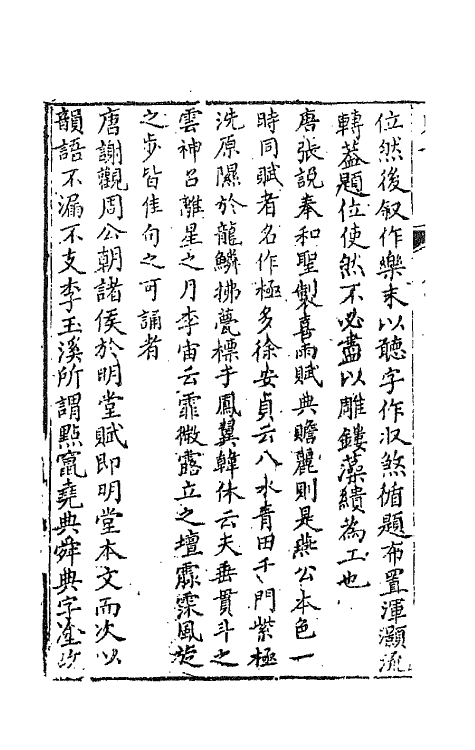 位然後叙作樂末以聽字作収煞循題布置渾灝流
轉葢題位使然不必盡以雕鏤藻繢為工也
唐張説奉和聖製喜雨賦典贍麗則是燕公本色一
時同賦者名作極多徐安貞云八水青田千門紫極
洗原隰於龍鱗拂甍標于鳳翼韓休云夫垂貫斗之
雲神吕離星之月李宙云霏微露立之壇霡霂風旋
之步皆佳句之可誦者
唐謝觀周公朝諸侯於明堂賦即明堂本文而次以
韻語不漏不支李玉溪所謂點竄堯典舜典字塗改